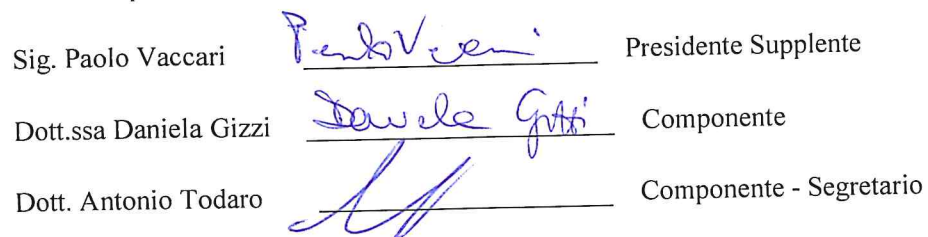 Sig. Paolo Vaccari Paolo Vaccari Presidente Supplente
Dott.ssa Daniela Gizzi Daniela Gizzi Componente
Dott. Antonio Todaro Componente - Segretario